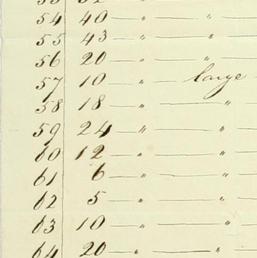 53 32
54 40 — " — "
55 43 — " — "
56 20 — " — "
57 10 — " — large
58 18 — " — "
59 24 — " — "
60 12 — " — "
61 6 — " — "
62 5 — " — "
63 10 — " — "
64 20 — " — "